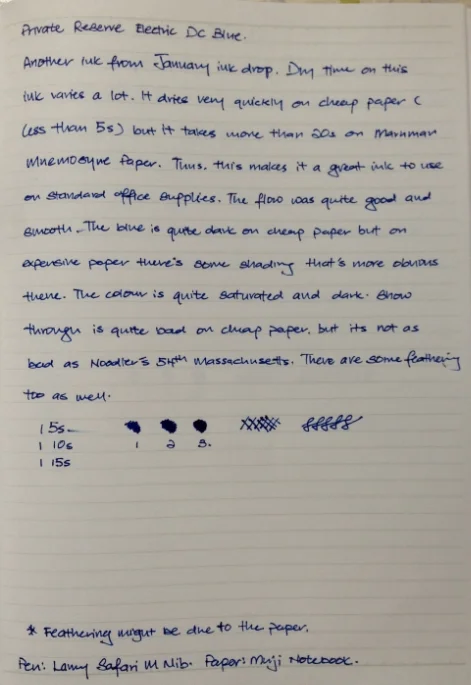 Private Reserve Electric DC Blue.
Another ink from January ink drop. Dry time on this
ink varies a lot. It dries very quickly on cheap paper (
less than 5s) but it takes more than 20s on Maruman
Mnemosyne Paper. Thus, this makes it a great ink to use
on standard office supplies. The flow was quite good and
smooth. The blue is quite dark on cheap paper but on
expensive paper there's some shading that's more obvious
there. The colour is quite saturated and dark. Show
through is quite bad on cheap paper, but its not as
bad as Noodler's 54th Massachusetts. There are some feathering
too as well.
| 5s
| 10s 1 2 3.
| 15s
* Feathering might be due to the paper.
Pen: Lamy Safari M Nib. Paper: Muji Notebook.